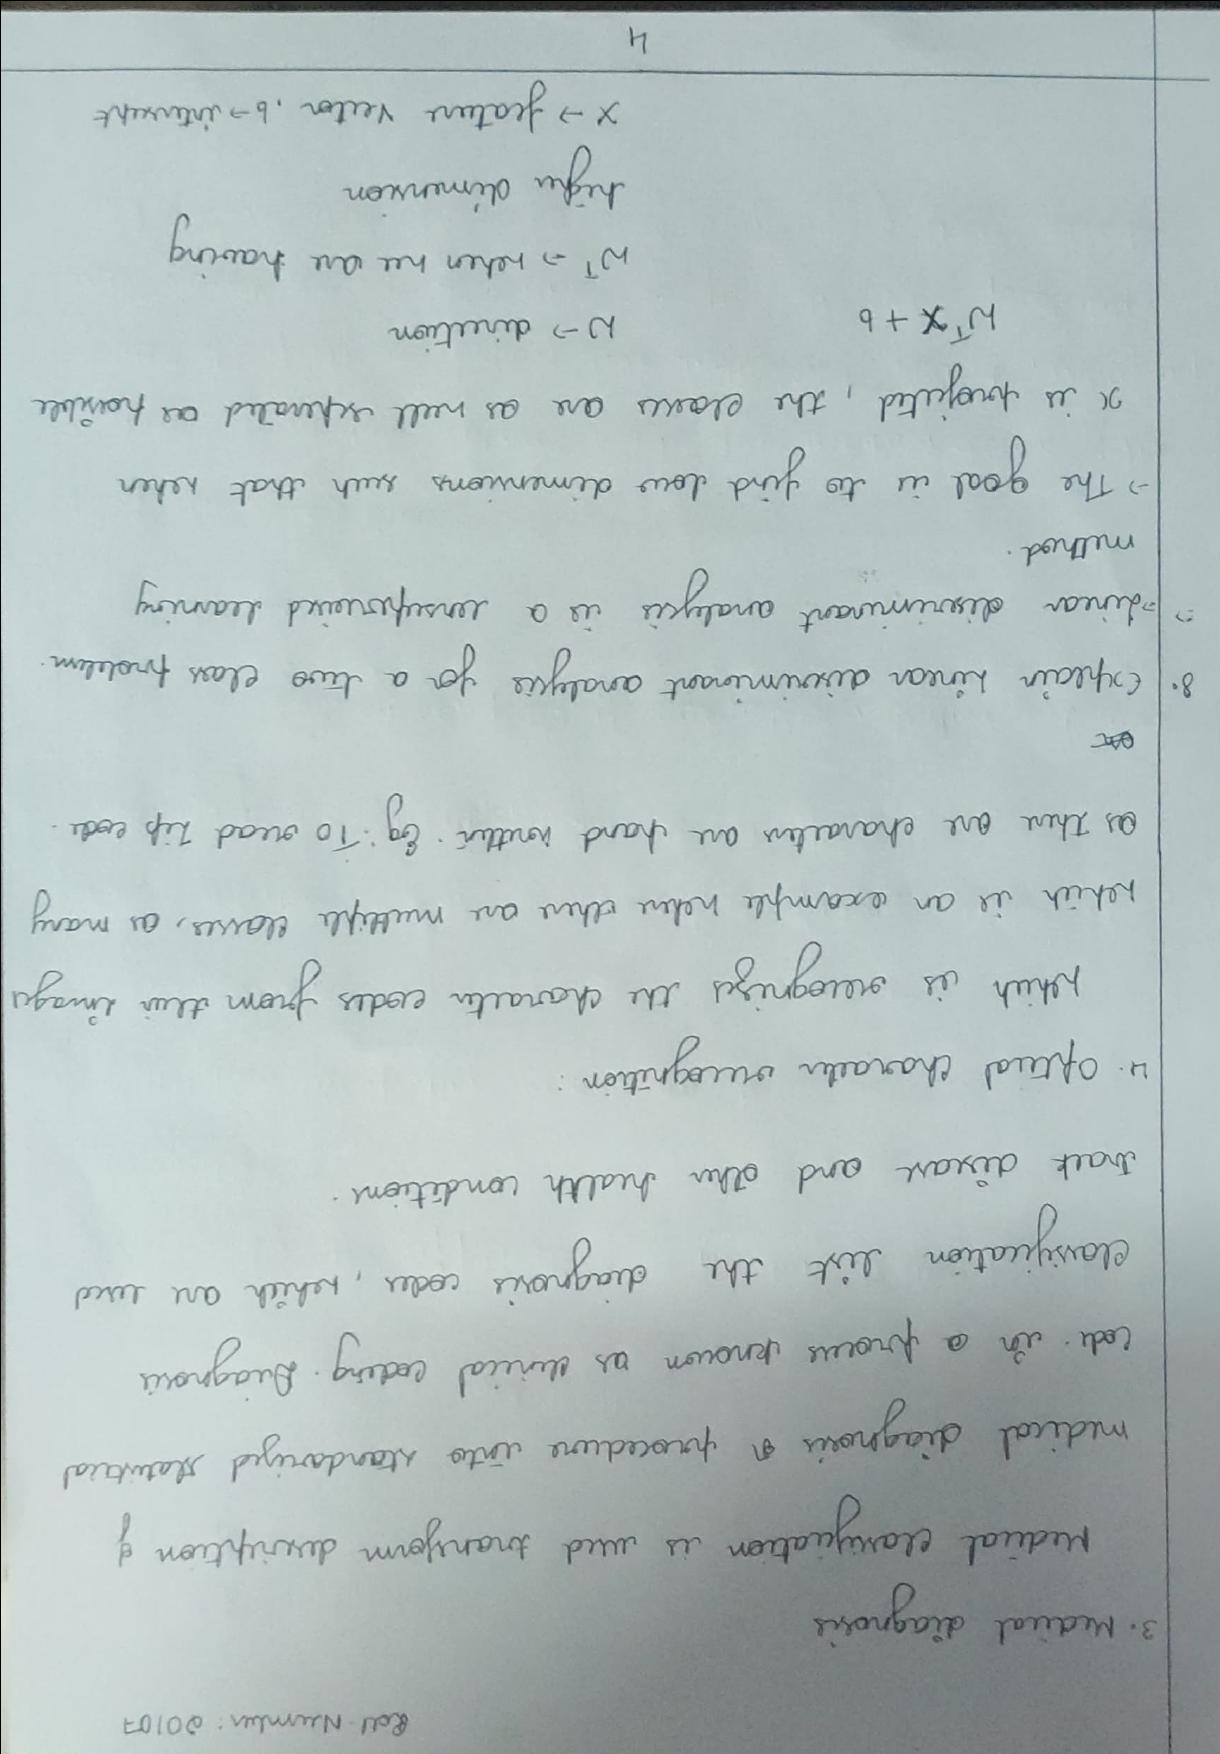 Roll Number: 20107
3. Medical diagnosis
Medical classification is used transform description of
medical diagnosis or procedure into standarized statistical
code in a process known as clinical coding. Diagnosis
classification list the diagnosis codes, which are used
track disease and other health conditions.
4. Optical character recognition :
which is recognizes the character codes from their images
which is an example where there are multiple classes, as many
as there are characters are hand written. Eg: To read zip code.
8. Explain Linear discriminant analysis for a two class problem.
→ Linear discriminant analysis is a supervised learning
method.
→ The goal is to find low dimensions such that when
x is projected, the classes are as well seperated as possible
Wᵀx + b W → direction
Wᵀ → when we are having
higher dimension
x → feature vector, b → intersect
4